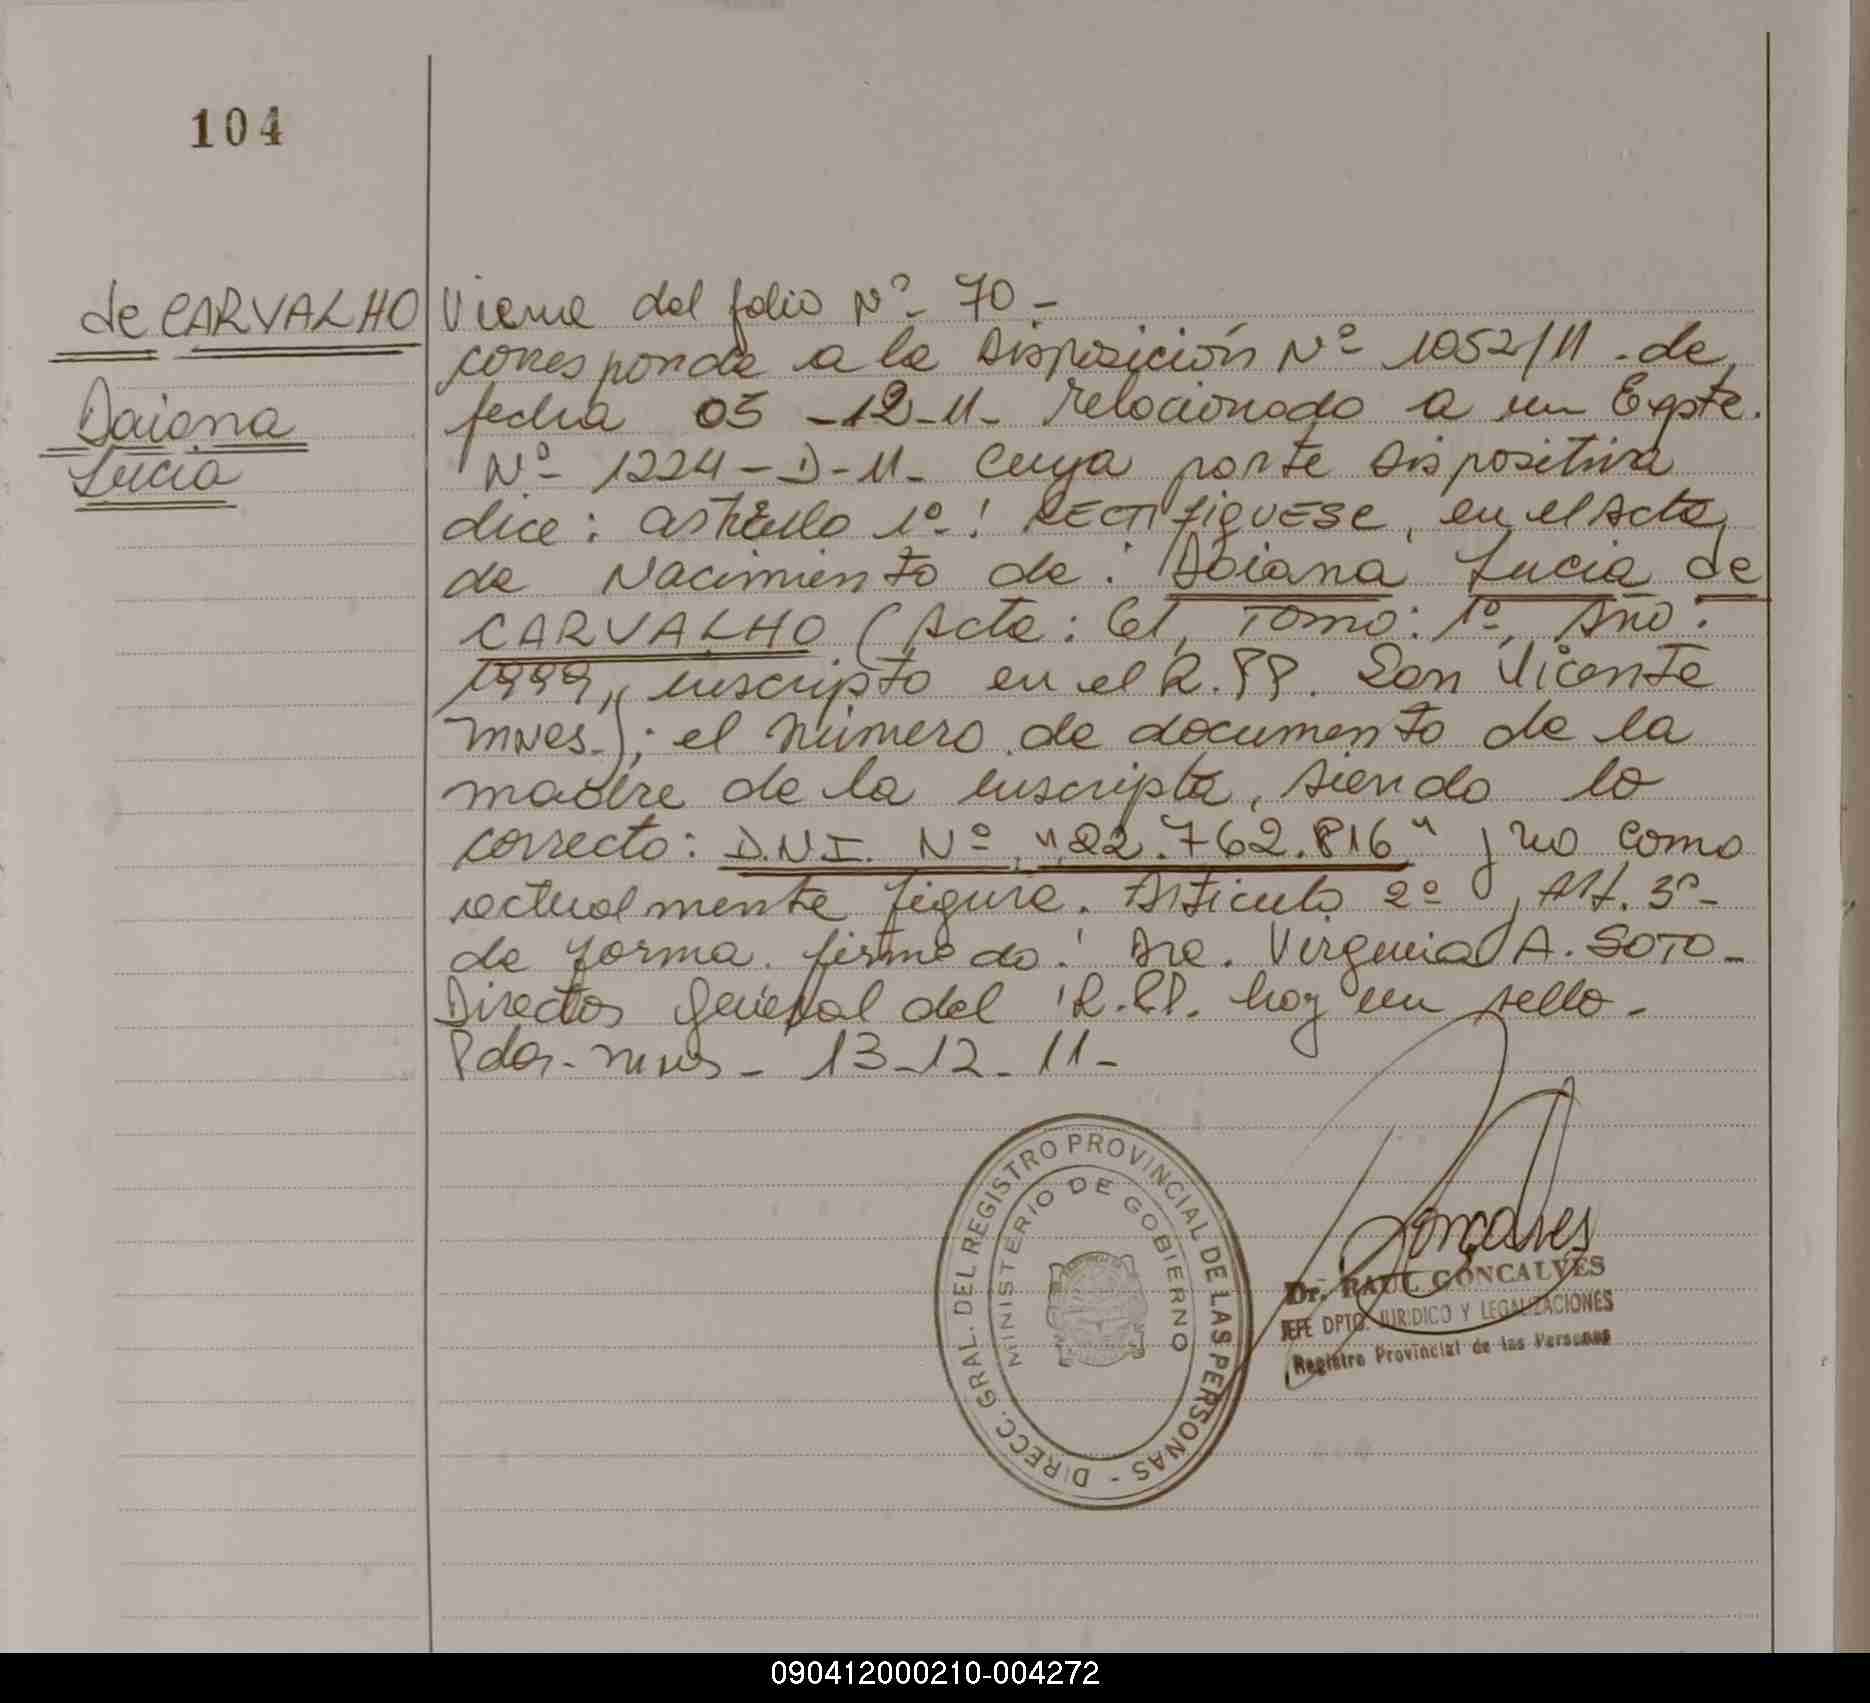 104
de CARVALHO
Daiana
Lucia
Viene del folio Nº 70 -
corresponde a la Disposición Nº 1052/11 . de
fecha 05 - 12 - 11 - relacionado a un Expte.
Nº - 1224 - D - 11 - cuya parte dispositiva
dice : artículo 1º - : RECTIFIQUESE, en el Acta
de Nacimiento de : Daiana Lucia de
CARVALHO (Acta : 61, Tomo : 1º, Año :
1999, inscripto en el R.PP. San Vicente
mnes.) ; el número de documento de la
madre de la inscripta, siendo lo
correcto : D.N.I. Nº "22.762.816" y no como
actualmente figura. Artículo 2º , Art. 3º -
de forma. firmado : Dra. Virginia A. SOTO -
Director general del R.PP. hoy un sello -
Pdas - mnes - 13 - 12 - 11 -
DIRECC. GRAL. DEL REGISTRO PROVINCIAL DE LAS PERSONAS -
MINISTERIO DE GOBIERNO
Goncalves
Dr. RAUL GONCALVES
JEFE DPTO. JURIDICO Y LEGALIZACIONES
Registro Provincial de las Personas
090412000210-004272